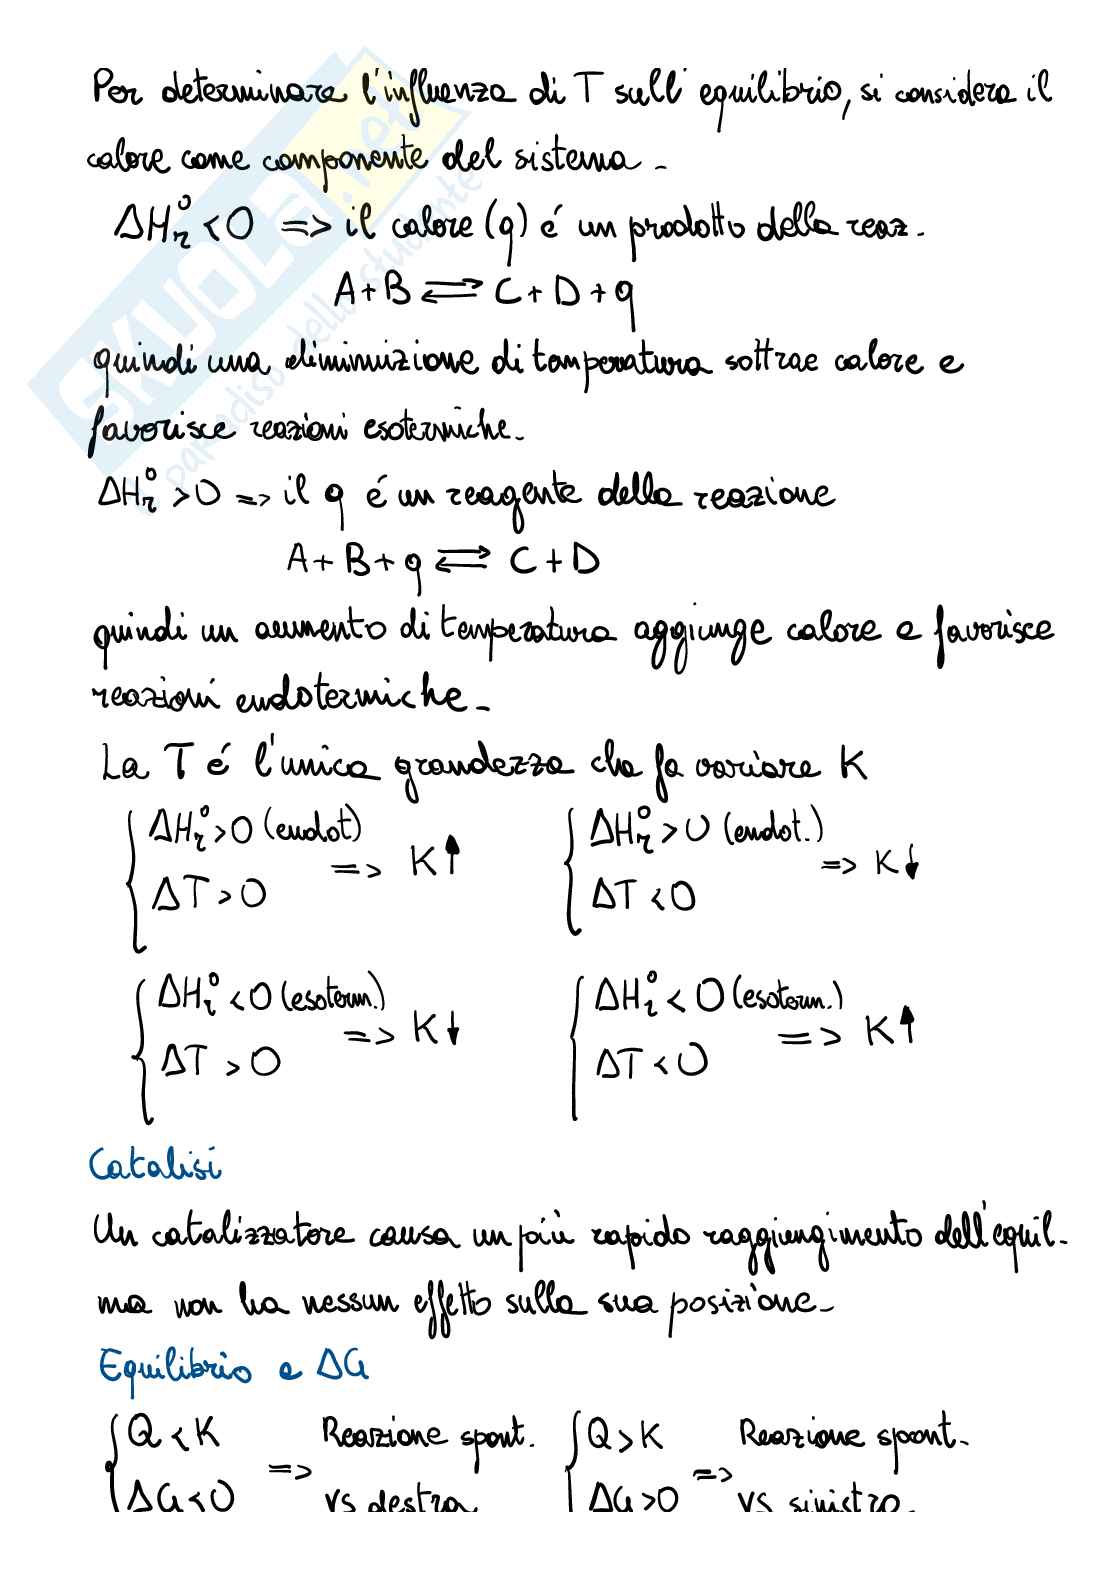 Per determinare l'influenza di T sull'equilibrio, si considera il
calore come componente del sistema -
ΔH°r < 0 => il calore (q) é un prodotto della reaz.
A + B ⇌ C + D + q
quindi una diminuizione di temperatura sottrae calore e
favorisce reazioni esotermiche.
ΔH°r > 0 => il q é un reagente della reazione
A + B + q ⇌ C + D
quindi un aumento di temperatura aggiunge calore e favorisce
reazioni endotermiche.
La T é l'unica grandezza che fa variare K
{ ΔH°r > 0 (endot) ΔT > 0 => K ↑
{ ΔH°r > 0 (endot.) ΔT < 0 => K ↓
{ ΔH°r < 0 (esoterm.) ΔT > 0 => K ↓
{ ΔH°r < 0 (esoterm.) ΔT < 0 => K ↑
Catalisi
Un catalizzatore causa un più rapido raggiungimento dell'equil.
ma non ha nessun effetto sulla sua posizione.
Equilibrio e ΔG
{ Q < K ΔG < 0 => Reazione spont. vs destra
{ Q > K ΔG > 0 => Reazione spont. vs sinistra.
SKUOLA.net
paradiso dello studente